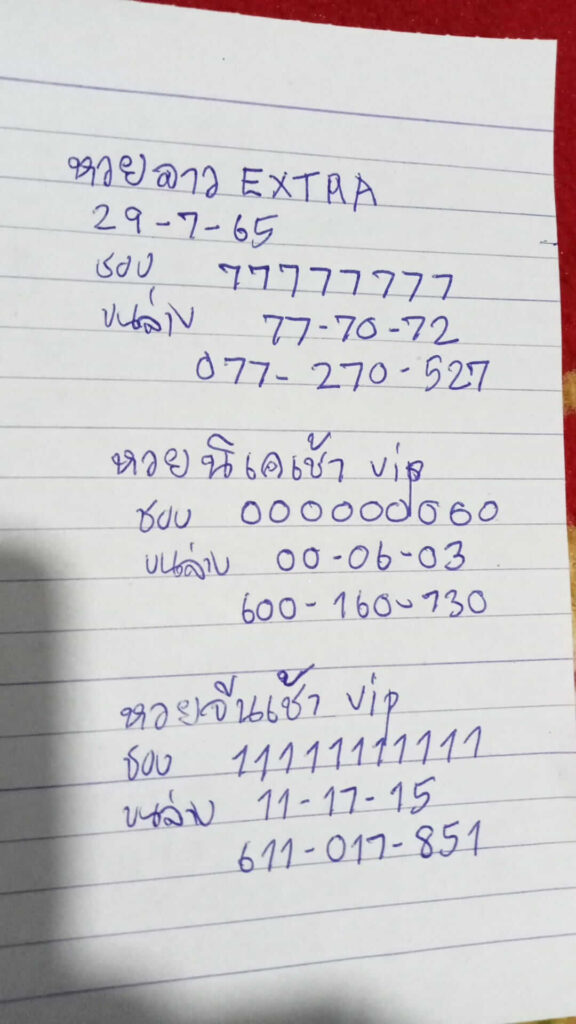 หวยลาว EXTRA
29-7-65
ชอบ 77777777
บนล่าง 77-70-72
077-270-527
หวยนิเคเช้า vip
ชอบ 000000060
บนล่าง 00-06-03
600-160-730
หวยจีนเช้า vip
ชอบ 11111111111
บนล่าง 11-17-15
611-017-851